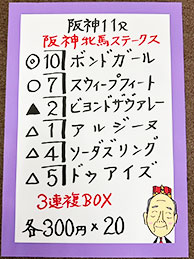 阪神11R
阪神牝馬ステークス
◎10 ボンドガール
○7 スウィープフィート
▲2 ビヨンドザヴァレー
△1 アルジーヌ
△4 ソーダズリング
△5 ドゥアイズ
3連複BOX
各300円×20